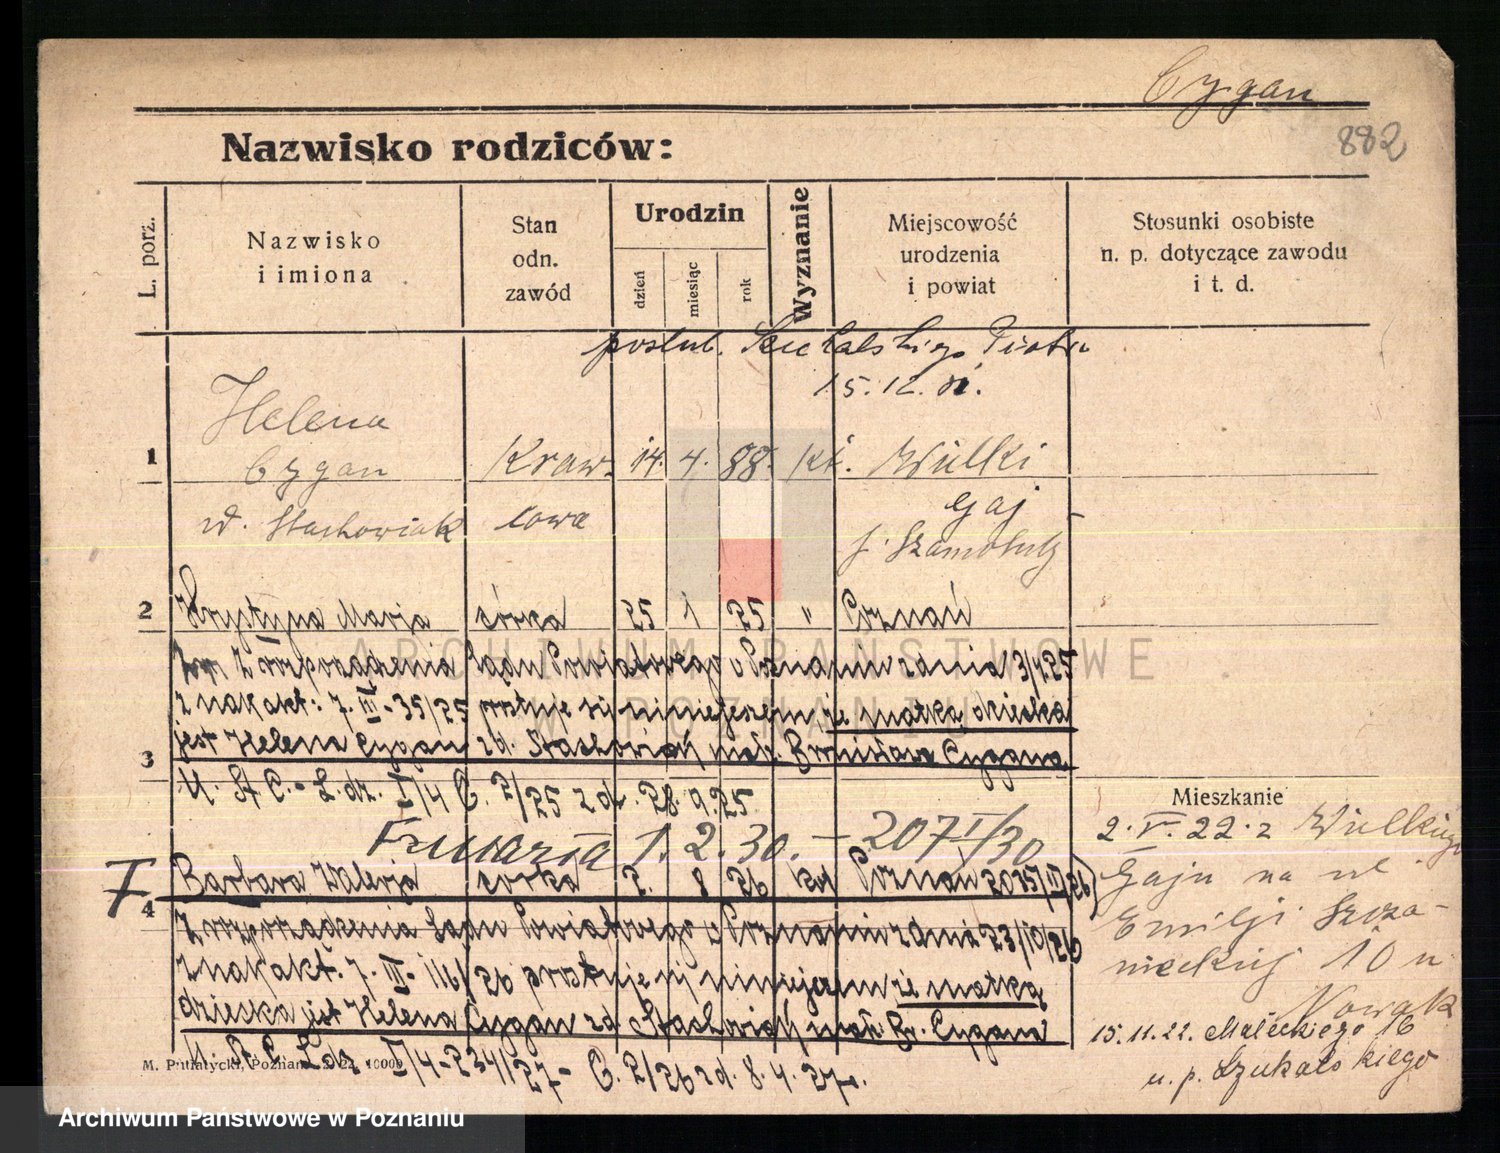 Cygan
882
Nazwisko rodziców:
L. porz.
Nazwisko
i imiona
Stan
odn.
zawód
Urodzin
dzień
miesiąc
rok
Wyznanie
Miejscowość
urodzenia
i powiat
Stosunki osobiste
n. p. dotyczące zawodu
i t. d.
poślub. Szukalskiego Piotra
15.12.
1 Helena Kraw- 14. 4. 88. kt. Wielki
Cygan
Gaj
zd. Stachowiak cowa
p. Szamotuły
2 Krystyna Maria córka 25 1 25 " Poznań
z rozporządzenia Sądu Powiatowego w Poznaniu z dnia 3/4.25
znak akt: 7. III - 35/25 prostuje się niniejszem że matką dziecka
jest Helena Cygan zd. Stachowiak małż. Bronisława Cygana
3
U. St. C. - L. dz. I/4 C. 2/25 z d. 28. 9. 25
Zmarła 1. 2. 30. - 207 I/30
† Barbara Walerja córka 2. 8 26 kat Poznań 2075/III/26
4
Z rozporządzenia Sądu Powiatowego w Poznaniu z dnia 23/10/26
znak akt. 7. III - 116/26 prostuje się niniejszem że matką
dziecka jest Helena Cygan zd Stachowiak małż. Br. Cygana
U. S. C. L. dz. I/4 - 234/27 - C. 2/26 z d. 8. 4. 27 r.
Mieszkanie
2. V. 22. z Wielkiego
Gaju na ul
Emilji Scza-
nieckiej 10 u
Nowak
15.11.22. Małeckiego 16
u. p. Szukalskiego
M. Putiatycki, Poznań 2. 22. 10000
ARCHIWUM PAŃSTWOWE
W POZNANIU
Archiwum Państwowe w Poznaniu